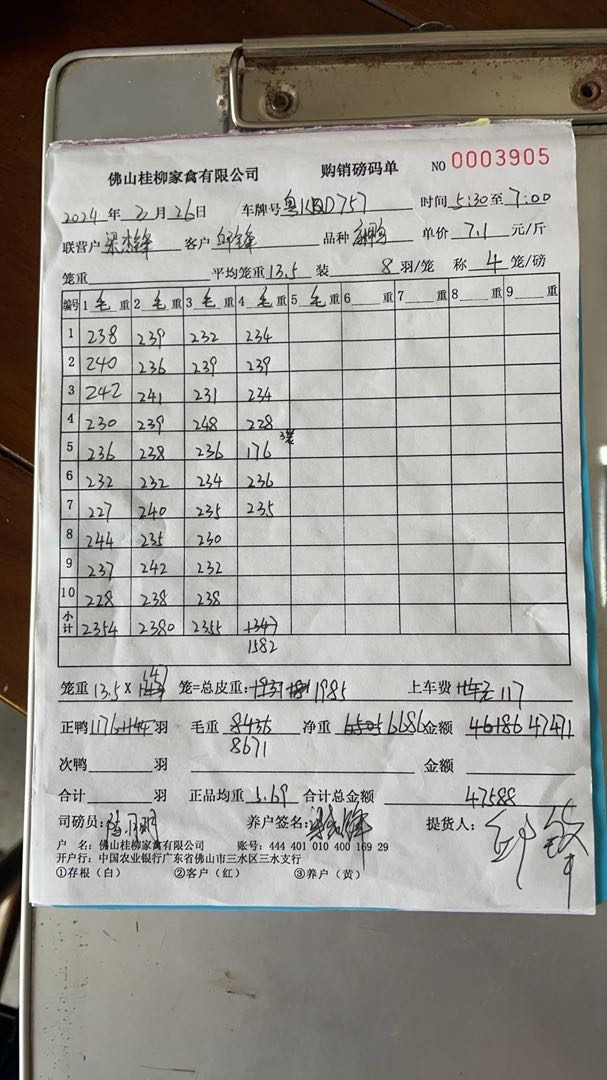 佛山桂柳家禽有限公司 购销磅码单 NO 0003905
2024年2月26日 车牌号 粤 D757 时间5:30至7:00
联营户 客户 品种 单价7.1元/斤
笼重 平均笼重13.5 装8羽/笼 称4笼/磅
编号 1毛重 2毛重 3毛重 4毛重 5毛重 6重 7重 8重 9重
1 238 239 232 234
2 240 236 239 239
3 242 241 231 234
4 230 239 248 228
5 236 238 236 176
6 232 232 234 236
7 227 240 235 235
8 244 235 230
9 237 242 232
10 228 238 238
小计 2354 2380 2355 1347
1582
笼重13.5X147笼=总皮重: 1985 上车费 117
正鸭1176羽 毛重8436 净重 6686金额 46186 47471
8671
次鸭羽 金额
合计羽 正品均重5.69 合计总金额 47588
司磅员: 养户签名: 提货人:
户 名: 佛山桂柳家禽有限公司 账号: 444 401 010 400 169 29
开户行: 中国农业银行广东省佛山市三水区三水支行
①存根（白） ②客户（红） ③养户（黄）